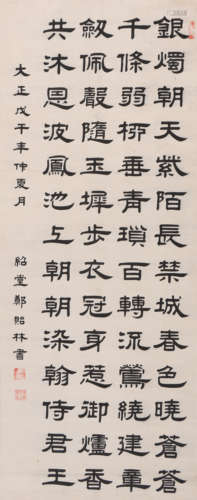 銀燭朝天紫陌長禁城春色曉蒼蒼
千條弱桺垂青瑣百轉流鶯繞建章
劔佩聲隨玉墀步衣冠身惹御爐香
共沐恩波鳳池上朝朝染翰侍君王
大正戊午年仲夏月 紹堂鄭貽林書